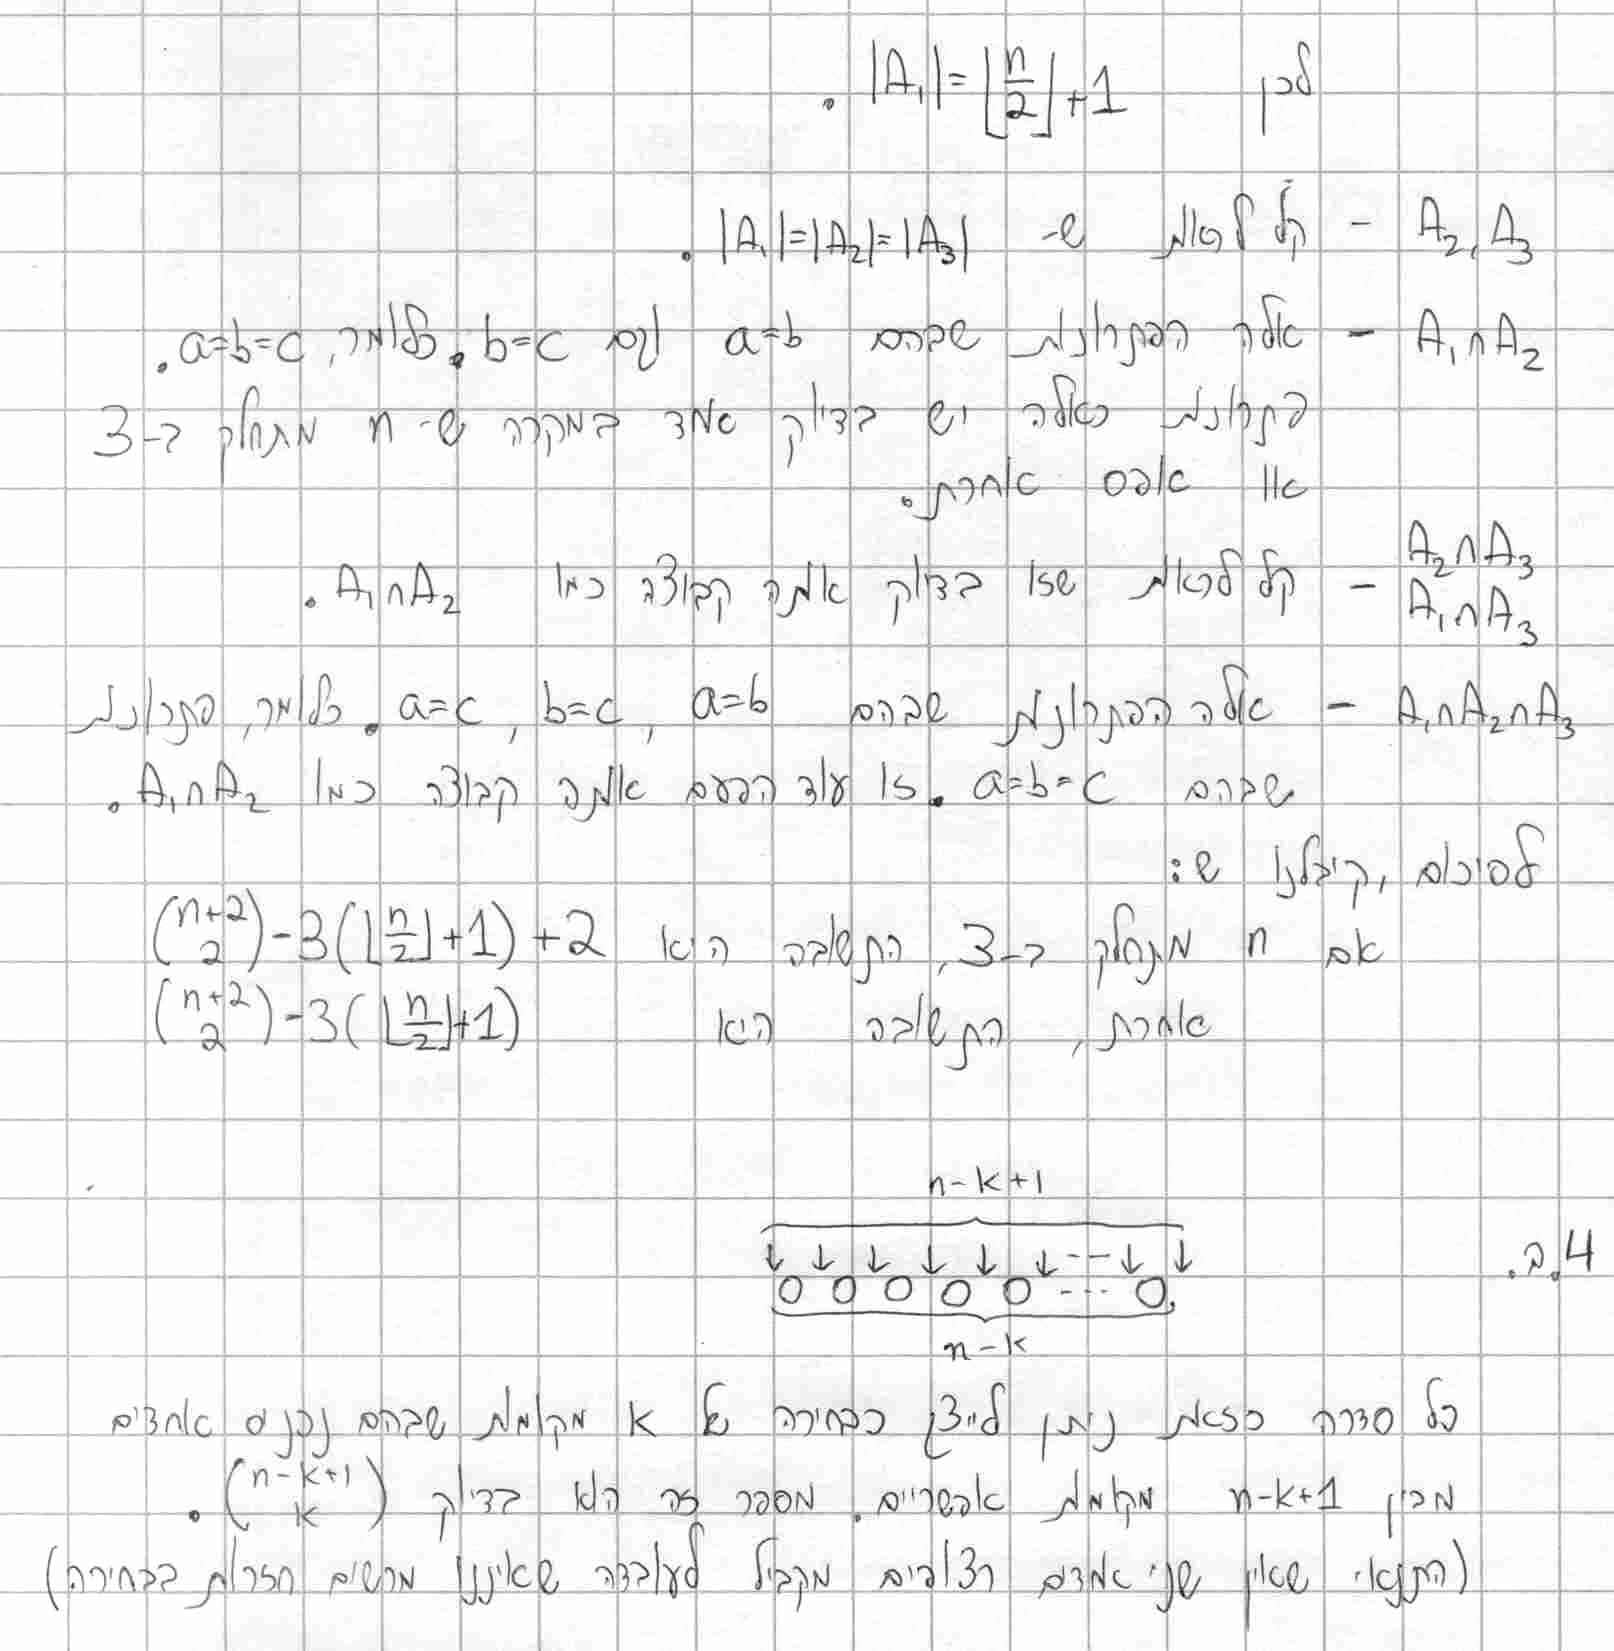 לכן |A₁| = ⌊n/2⌋ + 1 .
A₂, A₃ – קל לראות ש- |A₁|=|A₂|=|A₃| .
A₁∩A₂ – אלה הפתרונות שבהם a=b וגם b=c. כלומר, a=b=c.
פתרונות כאלה יש בדיוק אחד במקרה ש- n מתחלק ב-3
או אפס אחרת.
A₂∩A₃
A₁∩A₃ – קל לראות שזו בדיוק אותה קבוצה כמו A₁∩A₂ .
A₁∩A₂∩A₃ – אלה הפתרונות שבהם a=b , b=c , a=c. כלומר, פתרונות
שבהם a=b=c. זו עוד הפעם אותה קבוצה כמו A₁∩A₂ .
לסיכום, קיבלנו ש:
אם n מתחלק ב-3, התשובה היא (n+2 2) - 3(⌊n/2⌋+1) + 2
אחרת, התשובה היא (n+2 2) - 3(⌊n/2⌋+1)
n-k+1
4.ב.
↓ ↓ ↓ ↓ ↓ ↓ -- ↓ ↓
O O O O O --- O
n-k
כל סדרה כזאת ניתן לייצג כבחירה של k מקומות שבהם נכניס אחדים
מבין n-k+1 מקומות אפשריים. מספר זה הוא בדיוק (n-k+1 k) .
(התנאי שאין שני אחדים רצופים מקביל לעובדה שאיננו מרשים חזרות בבחירה)